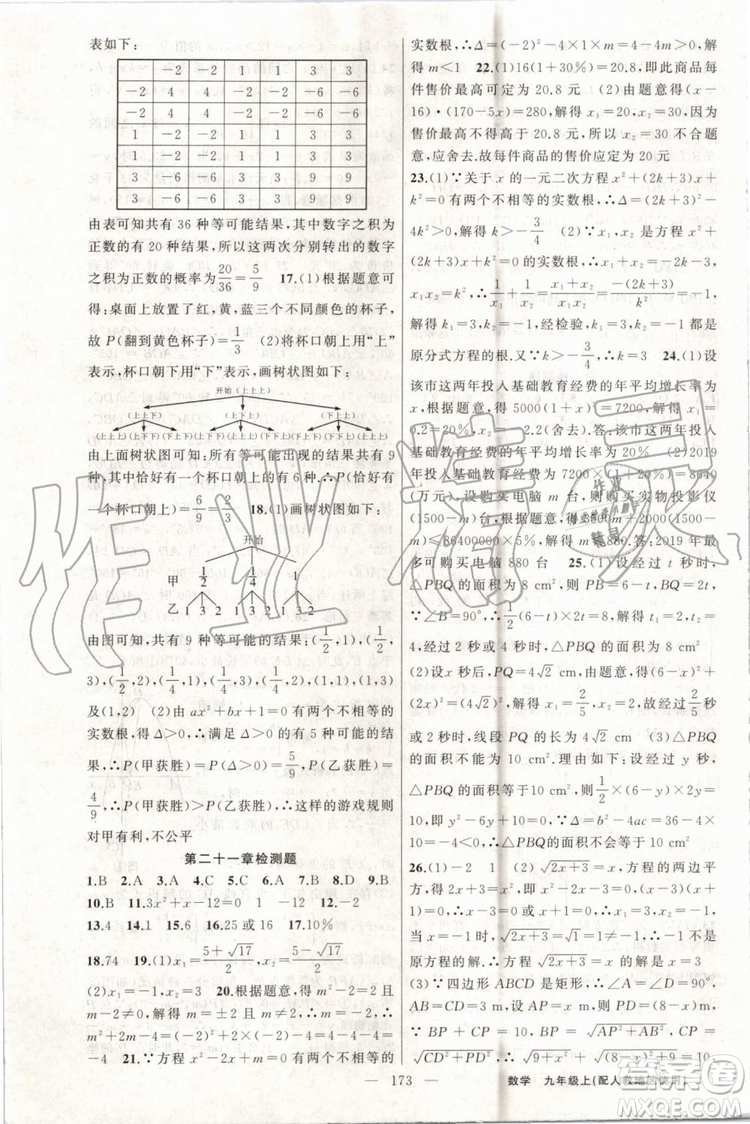 表如下：
-2 -2 1 1 3 3
-2 4 4 -2 -2 -6 -6
-2 4 4 -2 -2 -6 -6
1 -2 -2 1 1 3 3
1 -2 -2 1 1 3 3
3 -6 -6 3 3 9 9
3 -6 -6 3 3 9 9
由表可知共有 36 种等可能结果，其中数字之积为
正数的有 20 种结果，所以这两次分别转出的数字
之积为正数的概率为20/36＝5/9　17.(1)根据题意可
得：桌面上放置了红，黄，蓝三个不同颜色的杯子，
故 P(翻到黄色杯子)＝1/3　(2)将杯口朝上用“上”
表示，杯口朝下用“下”表示，画树状图如下：
开始(上上上)
(下上上) (上下上) (上上下)
(上上上)(下下上)(下上下)(下下上)(上上上)(上下下)(下上下)(上下下)(上上上)
由上面树状图可知：所有等可能出现的结果共有 9
种，其中恰好有一个杯口朝上的有 6 种，∴P(恰好
有一个杯口朝上)＝6/9＝2/3　18.(1)画树状图如图：
开始
甲 1/2 1/4 1
乙 1 3 2 1 3 2 1 3 2
由图可知，共有 9 种等可能的结果：(1/2，1)，(1/2，
3)，(1/2，2)，(1/4，1)，(1/4，3)，(1/4，2)，(1，1)，(1，3)
及(1，2)　(2)由 ax²＋bx＋1＝0 有两个不相等的
实数根，得Δ＞0，∴满足Δ＞0 的有 5 种可能的结
果，∴P(甲获胜)＝P(Δ＞0)＝5/9，P(乙获胜)＝
4/9，∴P(甲获胜)＞P(乙获胜)，∴这样的游戏规则
对甲有利，不公平
第二十一章检测题
1.B　2.A　3.A　4.C　5.C　6.A　7.B　8.D　9.B
10.B　11.3x²＋x－12＝0　1　－12　12.－2
13.4　14.1　15.6　16.25 或 16　17.10%
18.74　19.(1)x₁＝(5＋√17)/2，x₂＝(5－√17)/2
(2)x₁＝－1，x₂＝6　20.根据题意，得 m²－2＋
m－2m＝0，解得 m²－m＝2，∴原式＝m²－2m＋
1－2m²＋4m－2m²－4＋2m²＝
－4　21.∵方程 x²－2x＋m＝0 有两个不相等的
实数根，∴Δ＝(－2)²－4m＝4－4m＞0，解
得 m＜1　22.(1)16(1＋30%)＝20.8，即此商品每
件售价最高可定为 20.8 元　(2)由题意得(x－
16)·(170－5x)＝280，解得 x₁＝20，x₂＝30，因为
售价最高不得高于 20.8 元，所以 x＝30 不合题
意，应舍去.故每件商品的售价应定为 20 元
23.(1)∵关于 x 的一元二次方程 x²＋(2k＋3)x＋
k²＝0 有两个不等的实数根，∴Δ＝(2k＋3)²－
4k²＞0，解得 k＞－3/4　(2)∵x₁，x₂ 是方程 x²＋
(2k＋3)x＋k²＝0 的实数根，∴x₁＋x₂＝－2k－3，
x₁x₂＝k²，∴1/x₁＋1/x₂＝(x₁＋x₂)/x₁x₂＝－(2k＋3)/k²＝－1，
解得 k₁＝3，k₂＝－1，经检验，k₁，k₂ 都是
原分式方程的根，又∵k＞－3/4，∴k＝3　24.(1)设
该市这两年投入基础教育经费的年平均增长率为
x，根据题意，得 5000(1＋x)²＝7200，解得 x₁＝
0.2＝20%，x₂＝－2.2(舍去).答：该市这两年投入
基础教育经费的年平均增长率为 20%　(2)2019
年投入基础教育经费为 7200×(1＋20%)＝8640
(万元)，设购买电脑 m 台，则购买实物投影仪
(1500－m)台，根据题意得 3500m＋2000(1500－
m)≤86400000×5%，解得 m≤880.答：2019 年最
多可购买电脑 880 台　25.(1)设经过 t
秒后，△PBQ 的面积等于 8 cm²，则 PB＝6－t，BQ＝2t，
∵∠B＝90°，∴1/2(6－t)×2t＝8，解得 t₁＝2，t₂＝
4，经过 2 秒或 4 秒时，△PBQ 的面积等于 8 cm²
(2)设 x 秒后，PQ＝4√2 cm，由题意，得(6－x)²＋
4x²＝(4√2)²，解得 x₁＝2/5，x₂＝2，故经过 2/5 秒
或 2 秒时，线段 PQ 的长为 4√2 cm　(3)△PBQ
的面积不能为 10 cm².理由如下：设经过 y 秒，
△PBQ 的面积等于 10 cm²，则 1/2×(6－y)×2y＝
10，即 y²－6y＋10＝0，∵Δ＝b²－4ac＝36－4×
10＝－4＜0，∴△PBQ 的面积不会等于 10 cm²
26.(1)－2　1　(2)√(2x＋3)＝x，方程的两边平
方，得 2x＋3＝x²，即 x²－2x－3＝0，∴(x－3)(x＋
1)＝0，∴x－3＝0 或 x＋1＝0，∴x₁＝3，x₂＝－1.
当 x＝－1 时，√(2x＋3)＝√1＝1≠－1，∴－1 不是
原方程的解，∴方程√(2x＋3)＝x 的解是 x＝3
(3)∵四边形 ABCD 是矩形，∴∠A＝∠D＝90°，
AB＝CD＝3 m.设 AP＝x m，则 PD＝(8－x) m.
∵BP＋CP＝10，BP＝√(AP²＋AB²)，CP＝
√(CD²＋PD²)，∴√(9＋x²)＋√((8－x)²＋9)＝10，
— 173 —
数学　九年级上(配人教地区使用)
作业精灵
答案圈